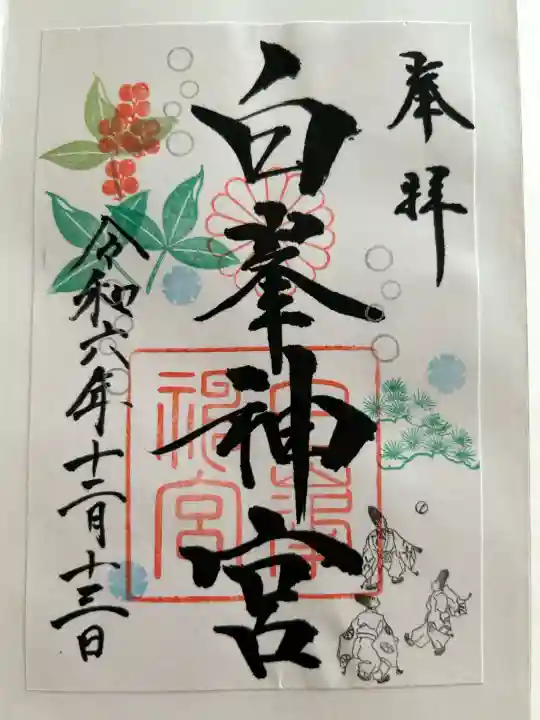 奉拝
白峯神宮
白峯神宮
令和六年十二月十三日